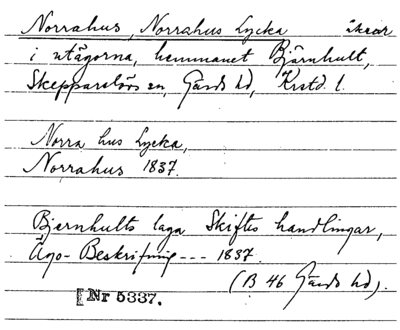 Norrahus, Norrahus Lycka åkrar
i utägorna, hemmanet Bjärnhult,
Skepparslövs sn, Gärds hd, Krstd. l.
Norra hus Lycka,
Norrahus 1837.
Bjernhults laga Skiftes handlingar,
Ägo-Beskrifning --- 1837.
(B 46 Gärds hd).
Nr 5337.